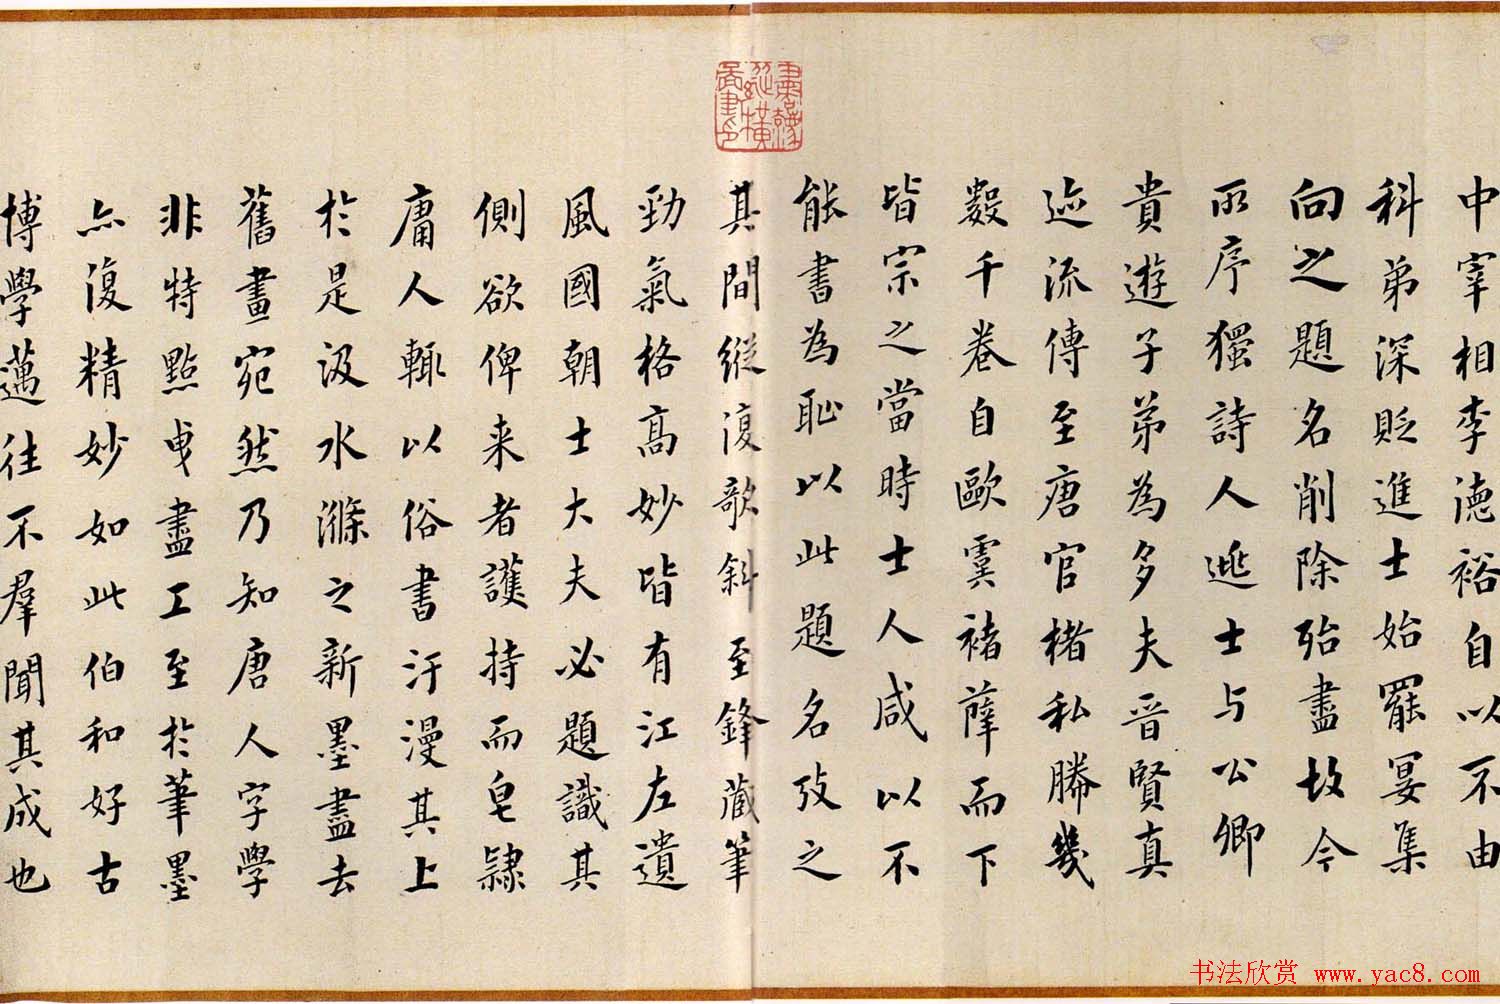 中宰相李德裕自以不由
科弟深貶進士始罷宴集
向之題名削除殆盡故今
所序獨詩人逃士与公卿
貴遊子弟為多夫晉賢真
迹流傳至唐官楮私牓幾
數千卷自歐虞褚薛而下
皆宗之當時士人咸以不
能書為恥以此題名攷之
其間縱復欹斜至鋒藏筆
勁氣格高妙皆有江左遺
風國朝士大夫必題識其
側欲俾来者護持而皂隷
庸人輒以俗書汙漫其上
於是汲水滌之新墨盡去
舊畫宛然乃知唐人字學
非特點曳盡工至於筆墨
亦復精妙如此伯和好古
博學邁往不羣聞其成也
书法欣赏 www.yac8.com